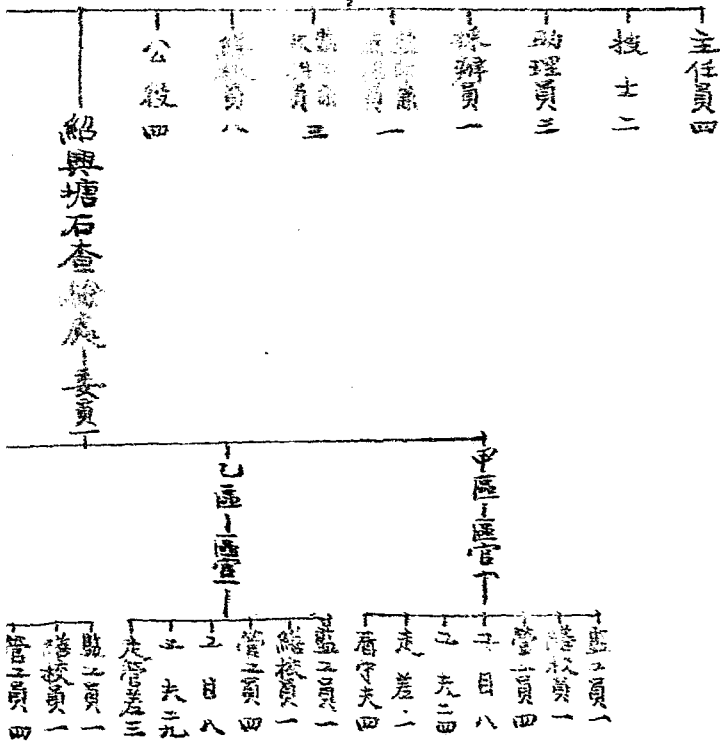 主任員四
技士二
助理員三
採辦員一
員一
員三
繪圖員八
公役四
紹興塘石查驗處
委員一
甲區
區官一
監工員一
總校員一
管工員四
工目八
工夫二四
走差一
看守夫四
乙區
區官一
監工員一
總校員一
管工員四
工目八
工夫二九
走管差三
監工員一
總校員一
管工員四